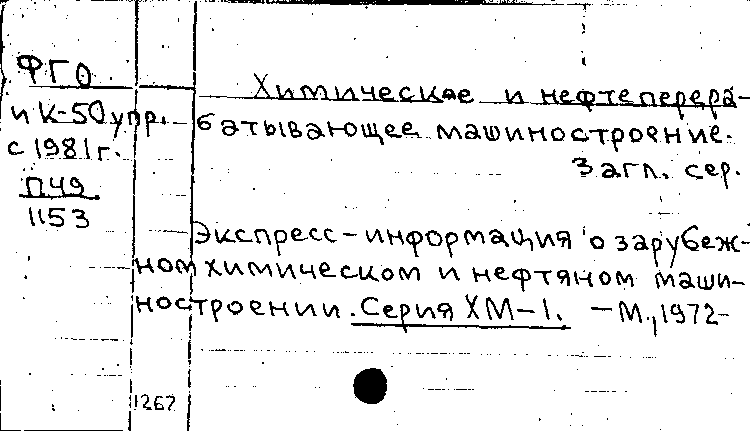 ФГО
и К-50 упр.
с 1981 г.
П49
1153
Химическое и нефтеперера-
батывающее машиностроение.
Загл. сер.
Экспресс-информация о зарубеж-
ном химическом и нефтяном маши-
ностроении. Серия ХМ-1. - М., 1972-
1267